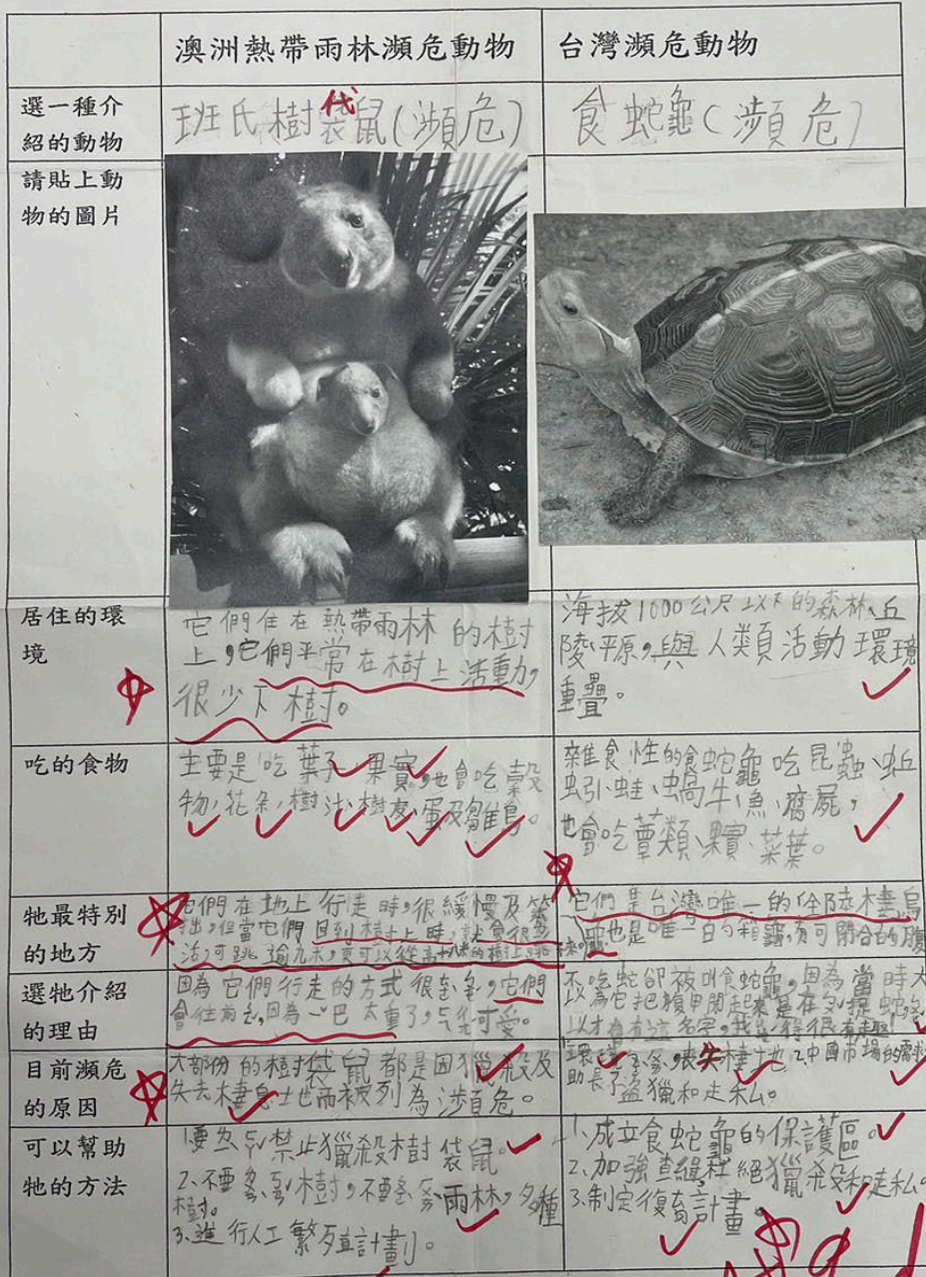 澳洲熱帶雨林瀕危動物
台灣瀕危動物
選一種介
紹的動物
班氏樹袋鼠(瀕危)
代
食蛇龜(瀕危)
請貼上動
物的圖片
居住的環
境
它們住在熱帶雨林的樹
上,它們平常在樹上活動,
很少下樹。
海拔1000公尺以下的森林、丘
陵平原,與人類活動環境
重疊。
吃的食物
主要是吃葉子、果實,也會吃穀
物、花朵、樹汁、樹皮、蛋及雛鳥。
雜食性的食蛇龜吃昆蟲、蚯
蚓、蛙、蝸牛、魚、腐屍,
也會吃蕈類、果實、菜葉。
牠最特別
的地方
它們在地上行走時,很緩慢及笨
拙,但當它們回到樹上時,就會很靈
活,可跳過九米,更可以從高十八米的樹上跳下來。
它們是台灣唯一的全陸棲烏
龜也是唯一的箱龜,有可閉合的腹
選牠介紹
的理由
因為它們行走的方式很
它們
會往前
因為
巴太重了,
可愛。
不吃蛇卻被叫食蛇龜,因為當時
以為它把腹甲閉起來是在
蛇,
以才有這名字,我覺得很有趣!
目前瀕危
的原因
大部份的樹袋鼠都是因獵殺及
失去棲息土也而被列為瀕危。
失棲
也 2.中國市場的需求
助長了盜獵和走私。
可以幫助
牠的方法
禁止獵殺樹袋鼠。
2.不要
樹,不要
雨林,多種
樹。
3.進行人工繁殖計劃。
1.成立食蛇龜的保護區。
2.加強查緝杜絕獵殺和走私。
3.制定復育計畫。